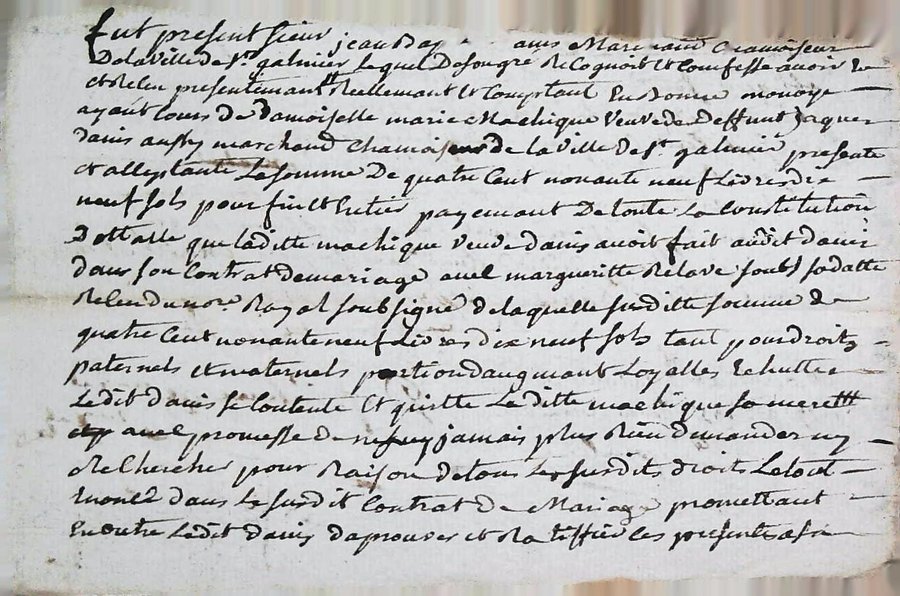 fut present sieur jean Bap anis Marchand Chamoiseur
De la ville De St galmier lequel De son gre Recognoit Et Comfesse avoir Eu
et Recu presentemant Reellemant Et Comptant En bonne monoye
ayant Cours de Damoiselle marie Machique Veuve de Deffunt Jaques
danis aussy marchand Chamoiseur De la ville De St galmier presente
et acceptante La somme De quatre Cent nonante neuf Livres dix
neuf sols pour fin Et Entier payemant De toute La Constitution
Dottalle que laditte machique Veuve danis avoit fait audit danis
dans son Contrat de mariage avec margueritte Relave soubs sa datte
Receu du nore Royal soubsigné de laquelle surditte somme de
quatre Cent nonante neuf Livres dix neuf sols tant pour droits
paternels et maternels portion daugmant Loyalles Echutte
Ledit danis se Contente Et quitte Laditte machique sa mere
avec promesse de jamais plus Rien demander ny
Rechercher pour Raison de tous Les surdits droits Le tout
Enoncé dans Le surdit Contrat de Mariage promettant
En outre Ledit danis daprouver et Ratiffier les presentes